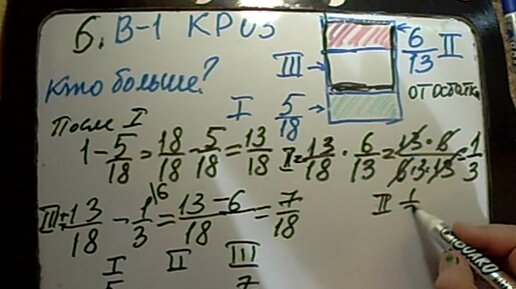 6. В-1 КР №5
Кто больше?
III
6/13 II
от остатка
I 5/18
После I
1 - 5/18 = 18/18 - 5/18 = 13/18
II = 13/18 · 6/13 = 13·6/6·3·13 = 1/3
III = 13/18 - 1/3 \6 = 13-6/18 = 7/18
II 1/
I II III
5 7